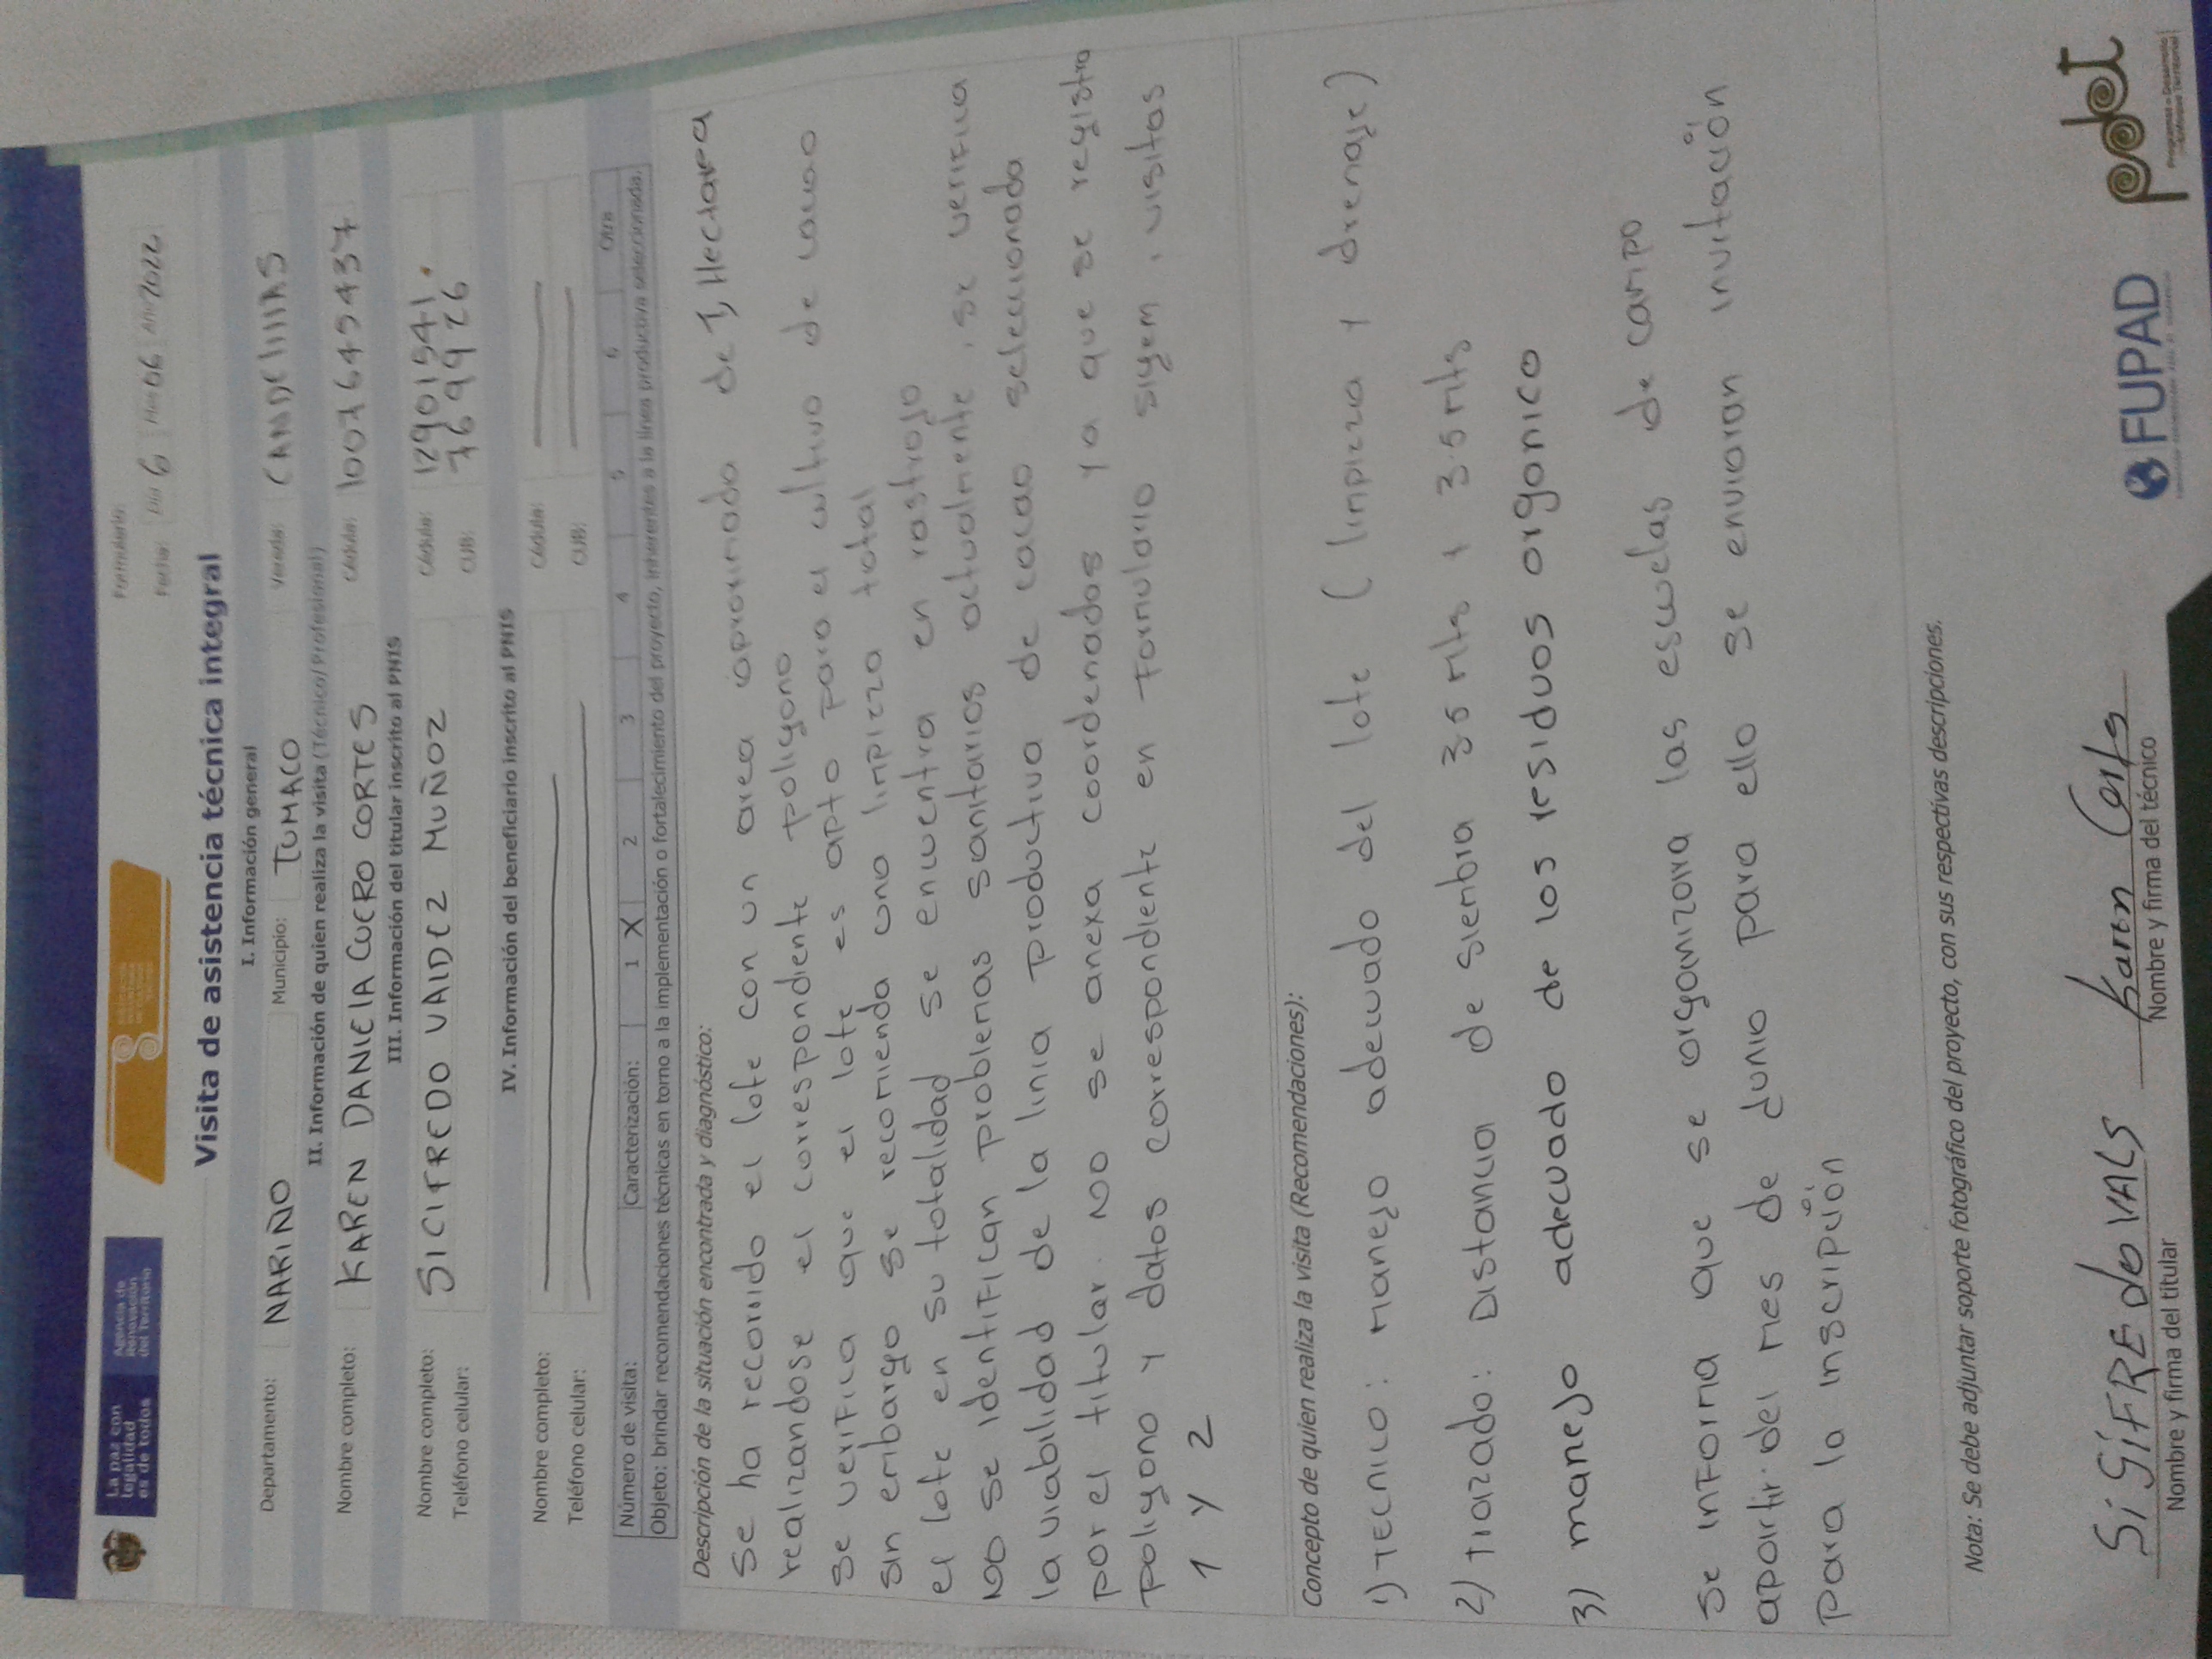 La paz con
legalidad
es de todos
Agencia de
Renovación
del Territorio
Formulario
Fecha: Día 6 Mes 06 Año 2022
Visita de asistencia técnica integral
I. Información general
Departamento: NARIÑO Municipio: TUMACO Vereda: CANDElillAS
II. Información de quien realiza la visita (Técnico/Profesional)
Nombre completo: KAREN DANIElA CUERO CORTES Cédula: 1007649437
III. Información del titular inscrito al PNIS
Nombre completo: SICIFREDO VAlDEZ MUÑOZ Cédula: 12901541.
Teléfono celular: CUB: 7699926
IV. Información del beneficiario inscrito al PNIS
Nombre completo: Cédula:
Teléfono celular: CUB:
Número de visita: Caracterización: 1 X 2 3 4 5 6 Otra
Objeto: brindar recomendaciones técnicas en torno a la implementación o fortalecimiento del proyecto, inherentes a la línea productiva seleccionada.
Descripción de la situación encontrada y diagnóstico:
se ha recorrido el lote con un area aproximada de 1, Hectarea
realizandose el correspondiente poligono
se verifica que el lote es apto para el cultivo de cacao
sin embargo se recomienda una limpieza total
el lote en su totalidad se encuentra en rastrojo
No se identifican problemas sanitarios actualmente, se verifica
la viabilidad de la linia productiva de cacao seleccionada
por el titular. No se anexa coordenadas ya que se registro
poligono y datos correspondiente en formulario sigem, visitas
1 y 2
Concepto de quien realiza la visita (Recomendaciones):
1) TECNICO: Manejo adecuado del lote (limpieza y drenaje)
2) Trazado: Distancia de siembra 3.5 mts x 3.5 mts
3) manejo adecuado de los residuos organico
se informa que se organizara las escuelas de campo
apartir del mes de Junio para ello se enviaran invitación
para la inscripción
Nota: Se debe adjuntar soporte fotográfico del proyecto, con sus respectivas descripciones.
SiGiFREdo VAlS
Nombre y firma del titular
Karen Cortes
Nombre y firma del técnico
FUPAD
pdet
Programas de Desarrollo
con Enfoque Territorial